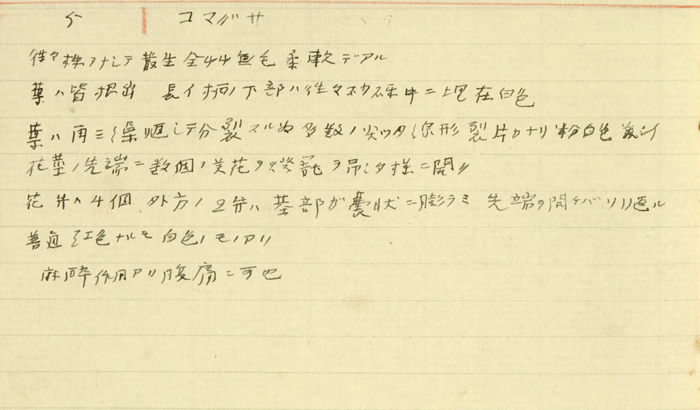 5 コマグサ
往々株ヲナシテ散生全艸無毛柔軟デアル
葉ハ皆根出 長イ柄ノ下部ハ往々砂礫中ニ埋在白色
葉ハ再三深廻シテ分裂スル為多数ノ尖リタ線形裂片トナリ粉白色
花茎ノ先端ニ数個ノ美花ヲ燈籠ヲ吊シタ様ニ開ク
花弁ハ4個 外方ノ2弁ハ基部ガ嚢状ニ膨ラミ 先端ヲ開ケバソリ返ル
普通紅色ナルモ白色ノモノアリ
麻酔作用アリ腹痛ニ可也